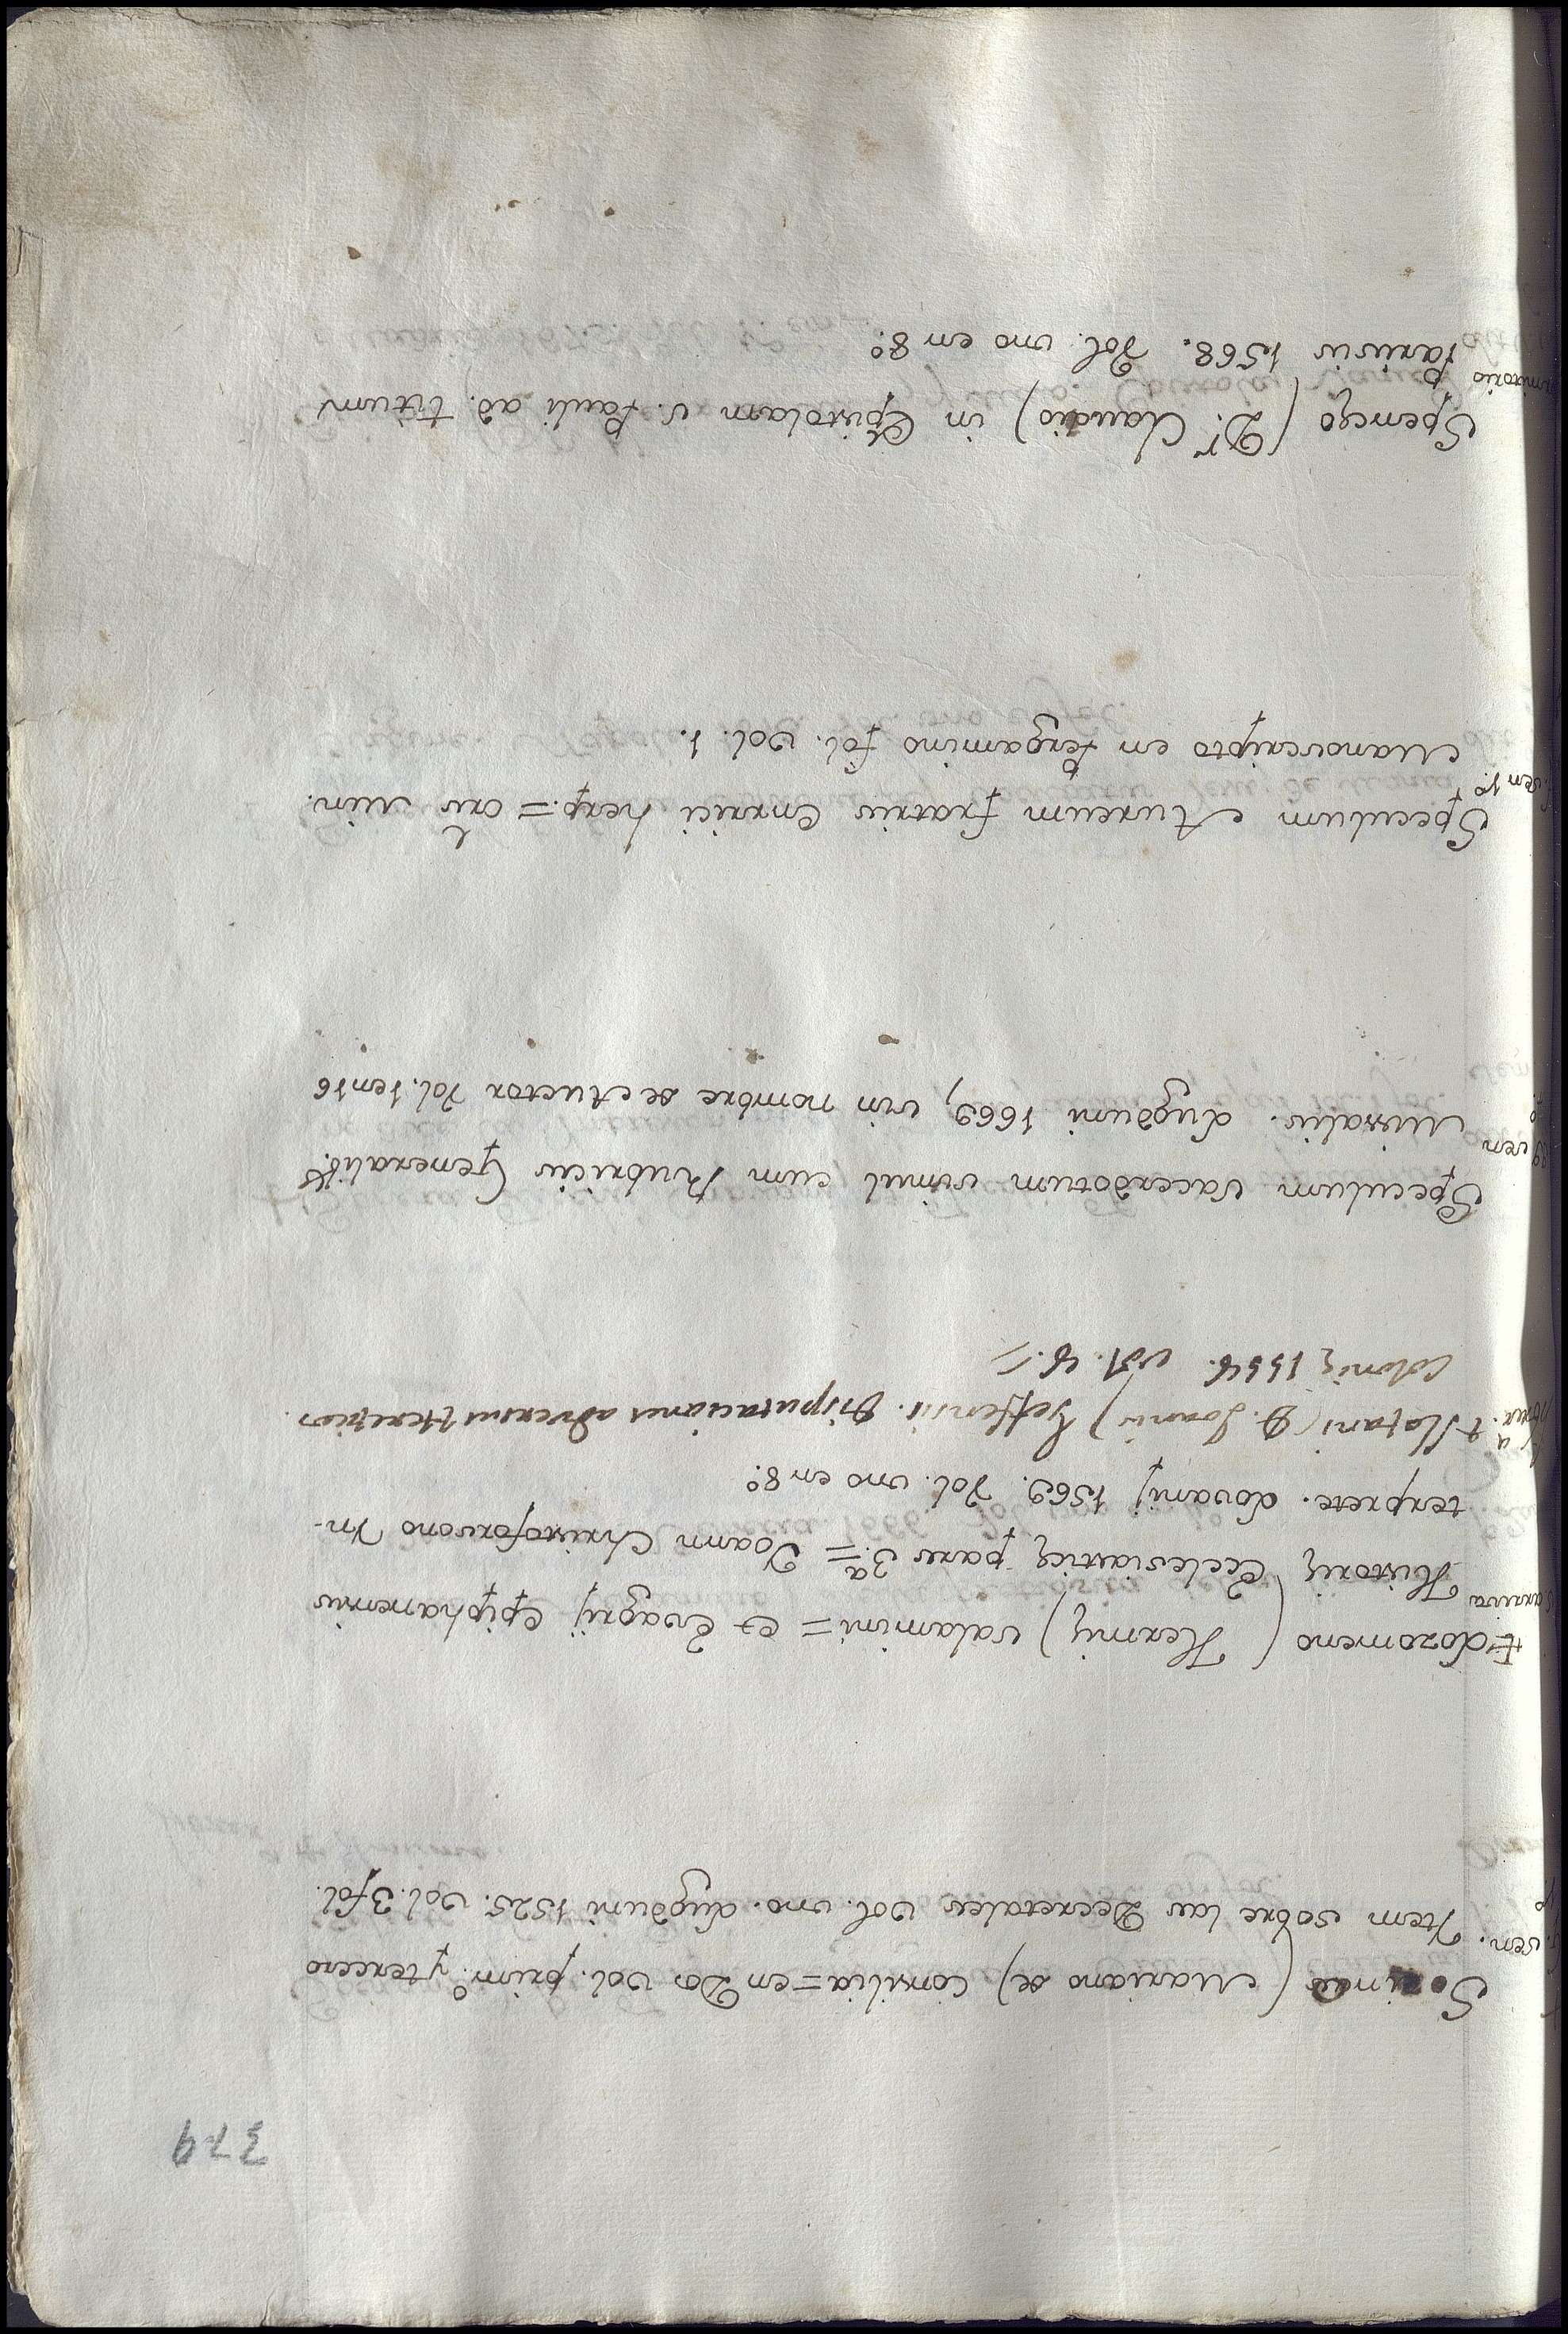 379
Socino (Mariano de) Consilia = en Dos Vol. prim.º y tercero
Item sobre las Decretales Vol. uno. Lugduni 1525. Vol. 3 fol.
Sozomeno (Hermię) salamini = et Evagrij Epiphanensis
Historię Ecclesiasticę pars 3.ª = Joann Christoforsono In-
terprete. Lovanij 1569. Vol. uno en 8.º
+ Slotani (D. Joannis) Geffensis. Disputaciones adversus Hereticos.
Colonię 1558. vol. 4.
Speculum sacerdotum simul cum Rubricis Generalib.s
Missalis. Lugduni 1669, sin nombre de Auctor Vol. 1 en 16
Speculum Aureum fratris Enrrici herp = ors Min.
Manoscripto en Pergamino fol. Vol. 1.
Spencęo (D.r Claudio) in Epistolam S. Pauli ad titum
Parisis 1568. Vol. uno en 8.º